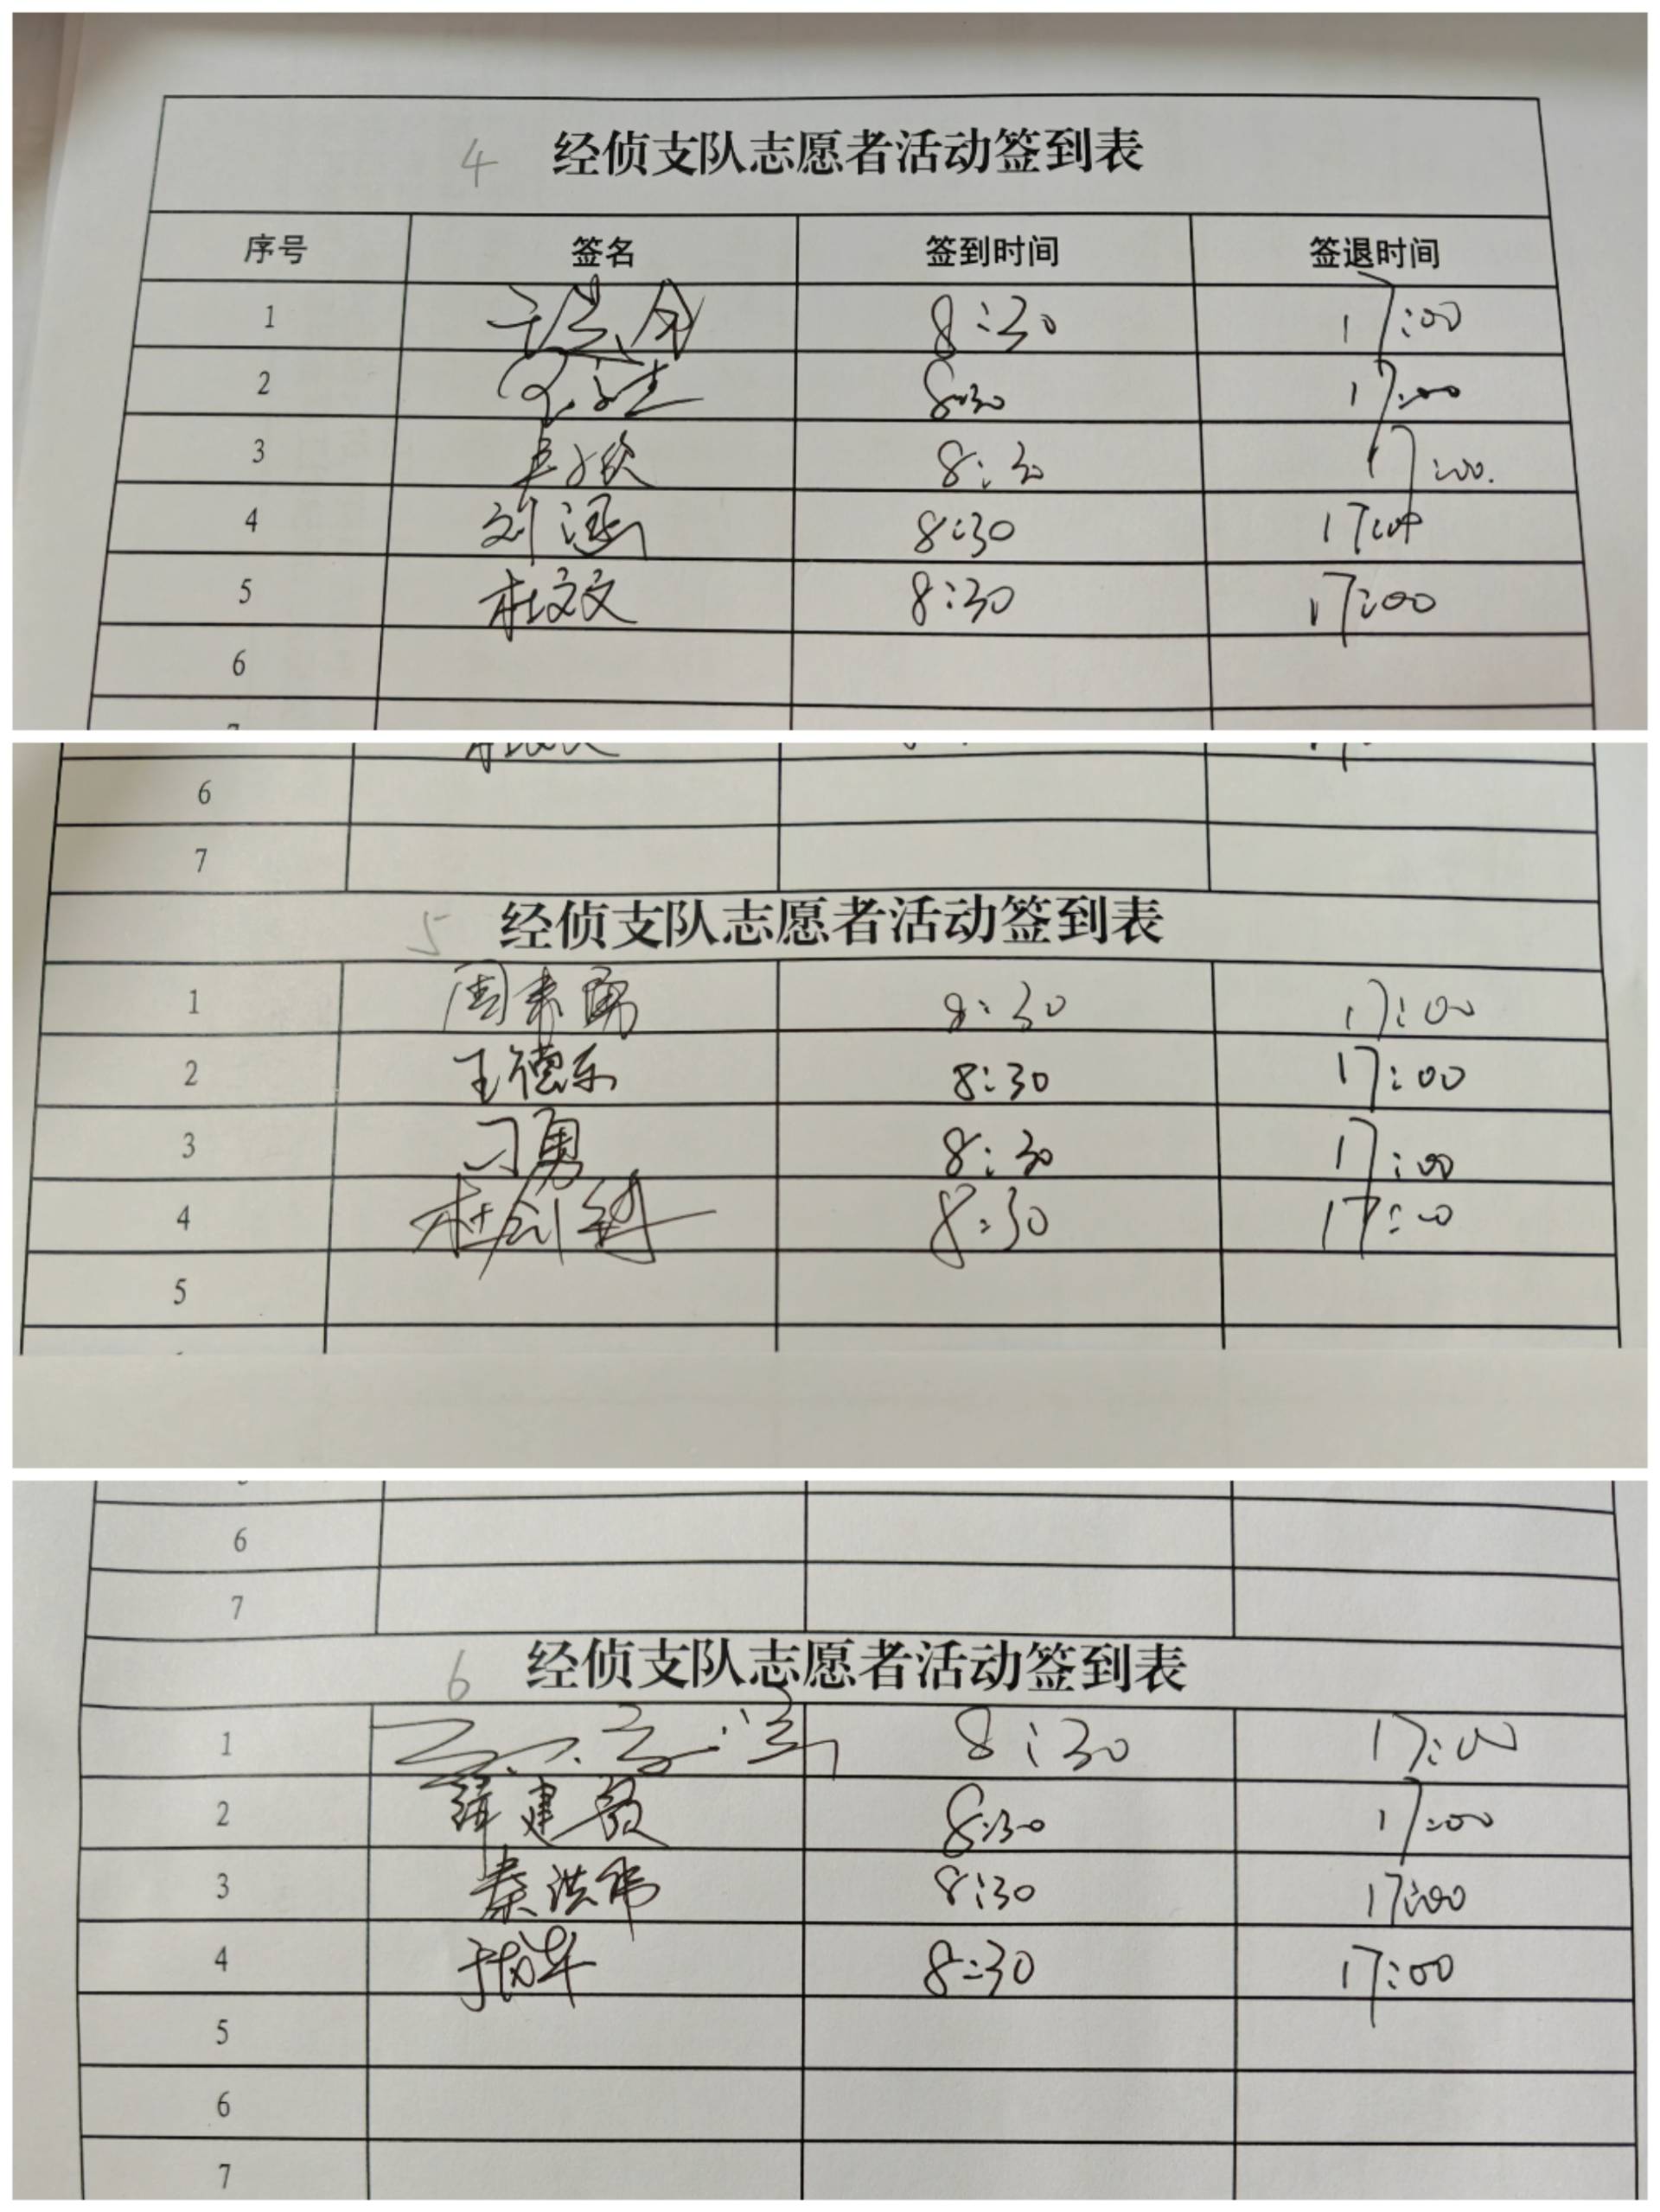 4 经侦支队志愿者活动签到表
序号 签名 签到时间 签退时间
1 8:30 17:00
2 8:30 17:00
3 8:30 17:00.
4 刘涵 8:30 17:00
5 杜文文 8:30 17:00
6
6
7
5 经侦支队志愿者活动签到表
1 8:30 17:00
2 王德乐 8:30 17:00
3 刁勇 8:30 17:00
4 杜剑锋 8:30 17:00
5
6
7
6 经侦支队志愿者活动签到表
1 8:30 17:00
2 薛建敏 8:30 17:00
3 秦洪伟 8:30 17:00
4 8:30 17:00
5
6
7